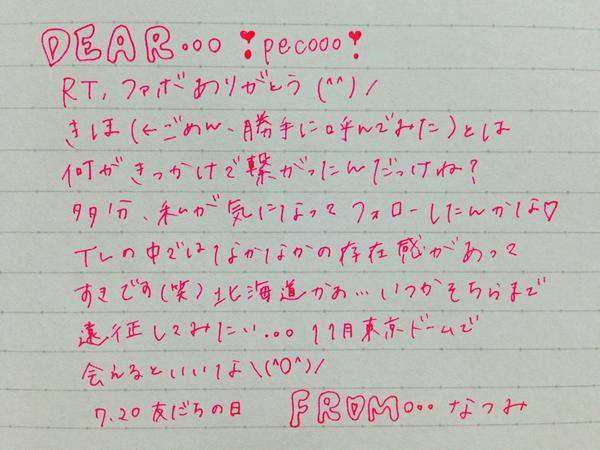 DEAR...○○○ ❣pecooo❣
RT、ファボありがとう(^^)/
きほ(←ごめん、勝手に呼んでみた)とは
何がきっかけで繋がったんだっけね?
多分、私が気になってフォローしたんかな♡
TLの中ではなかなかの存在感があって
すきです(笑)北海道かぁ…いつかそちらまで
遠征してみたい... 11月東京ドームで
会えるといいな\(^O^)/
7.20 友だちの日 FROM... なつみ